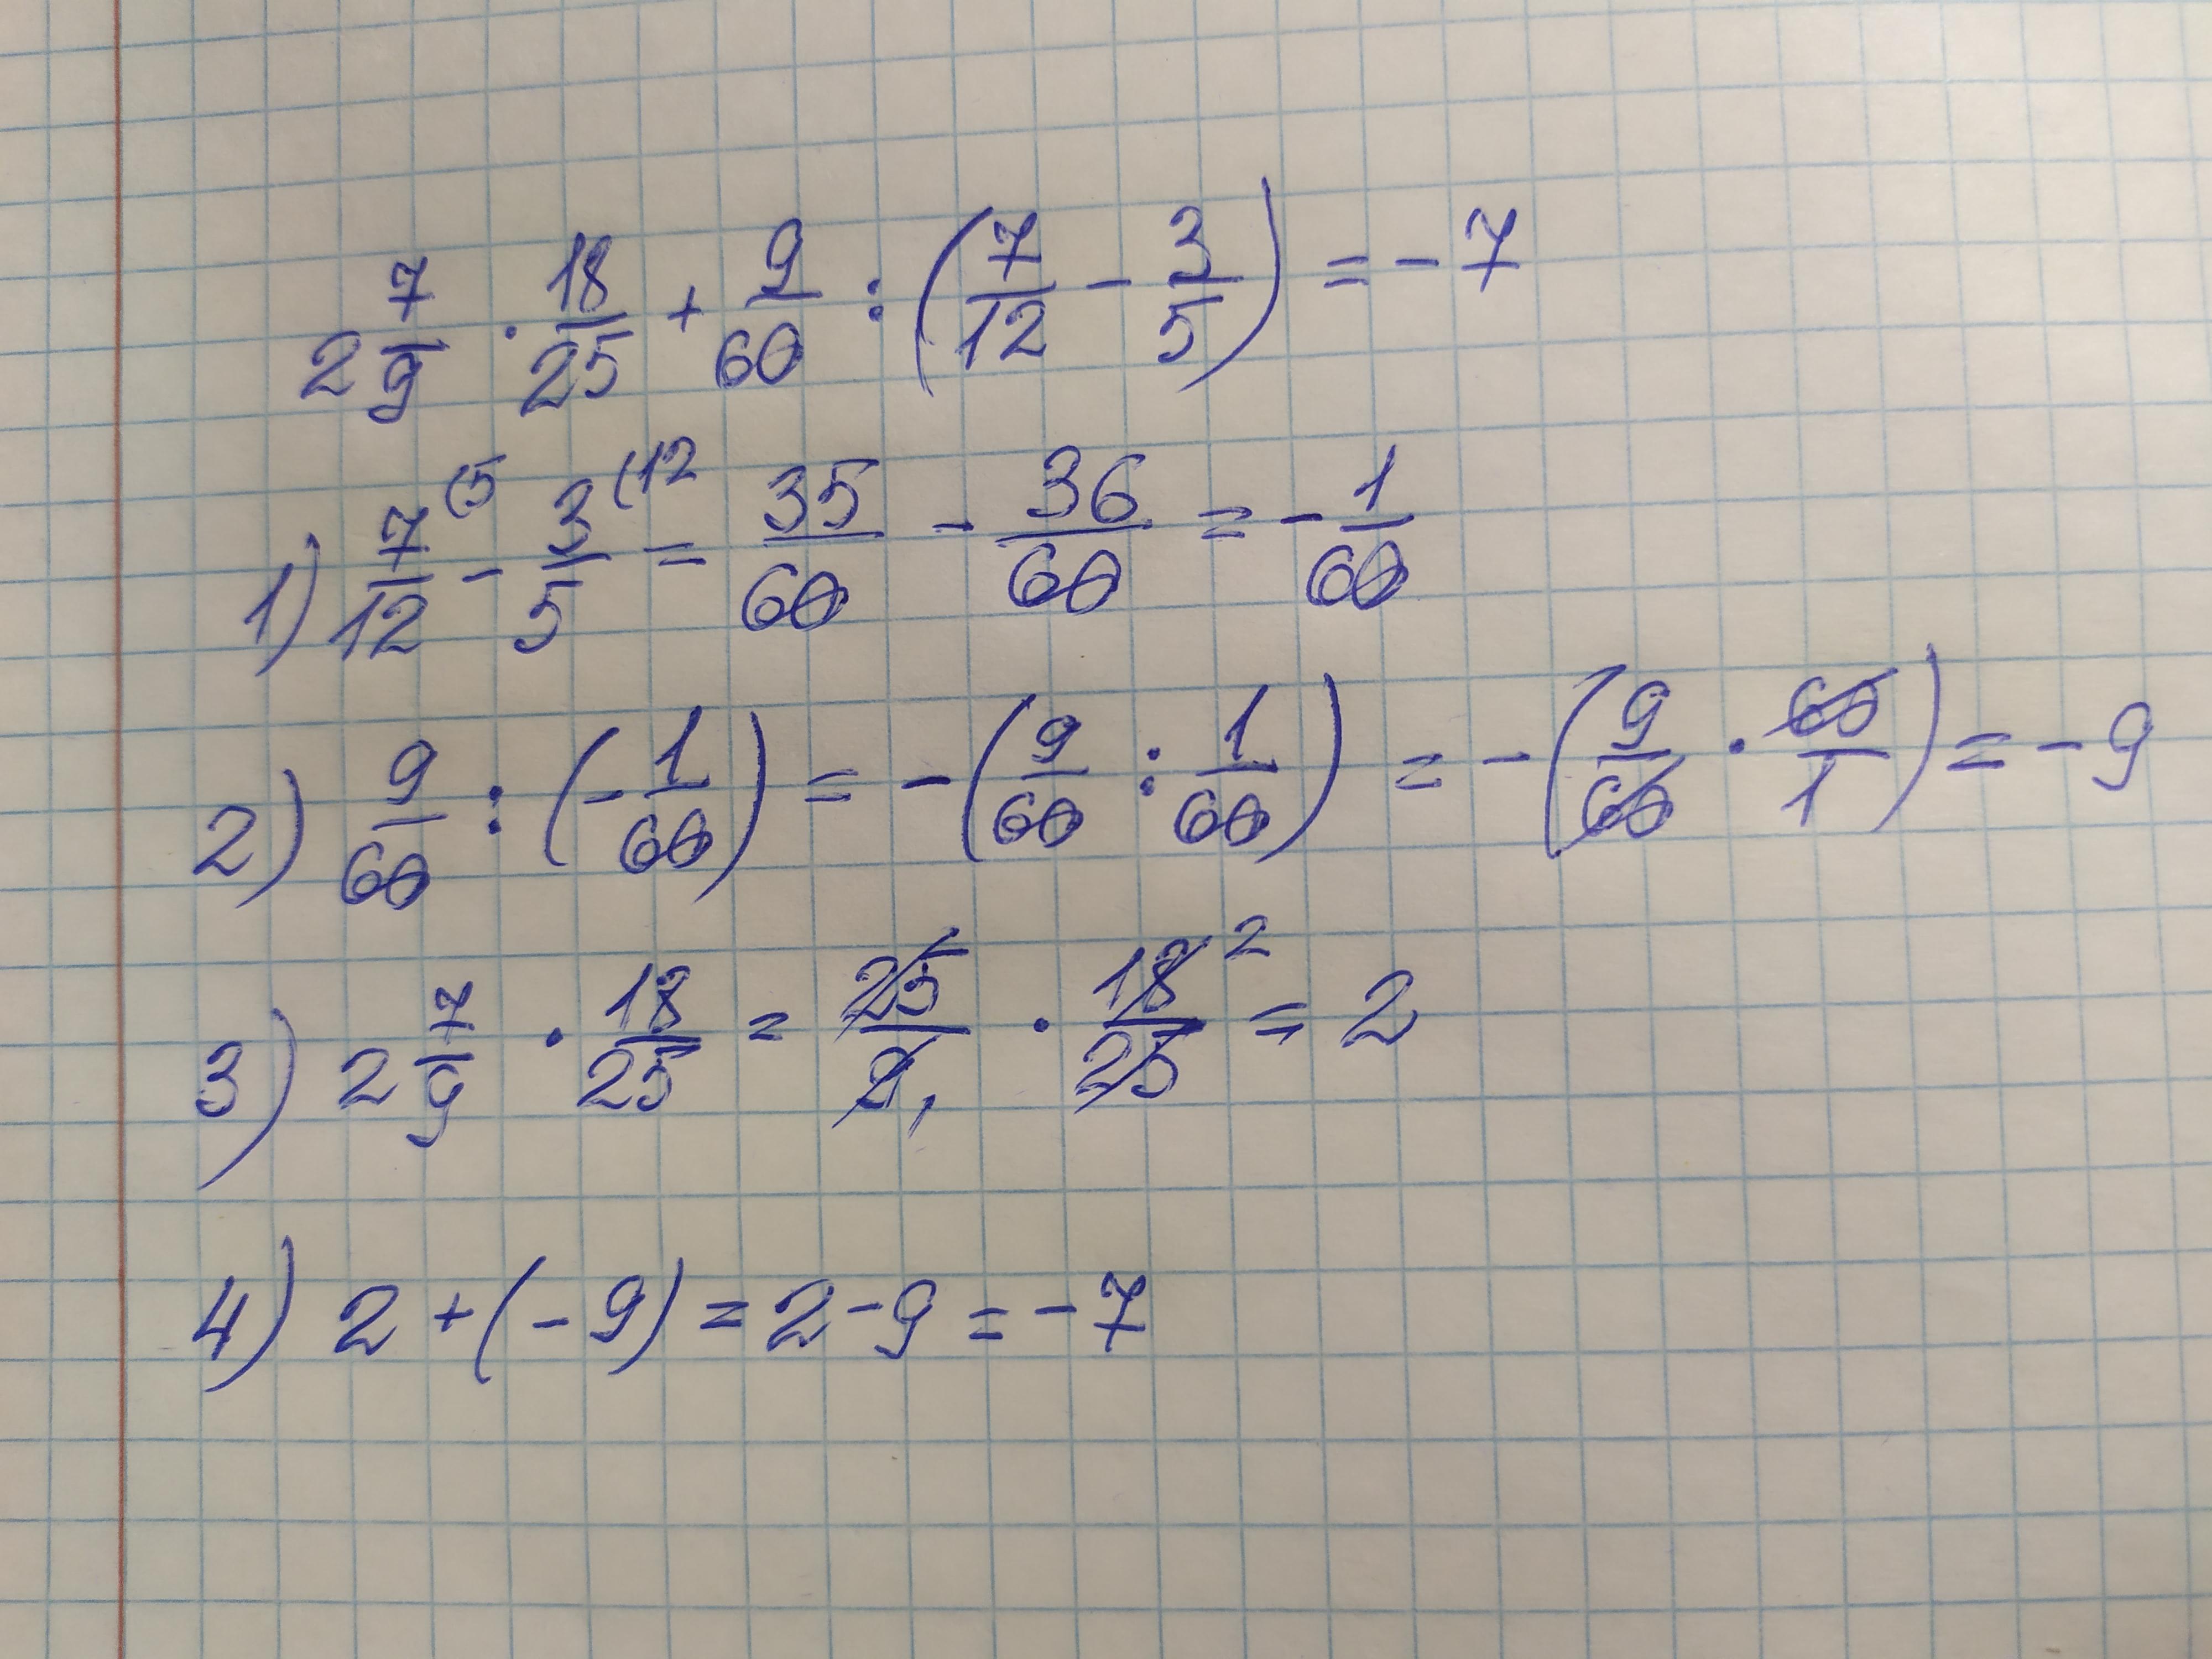 2 7/9 · 18/25 + 9/60 : (7/12 - 3/5) = - 7
1) 7/12 (5 - 3/5 (12 = 35/60 - 36/60 = - 1/60
2) 9/60 : (- 1/60) = - (9/60 : 1/60) = - (9/60 · 60/1) = - 9
3) 2 7/9 · 18/25 = 25/9 1 · 18 2/25 = 2
4) 2 + (- 9) = 2 - 9 = - 7